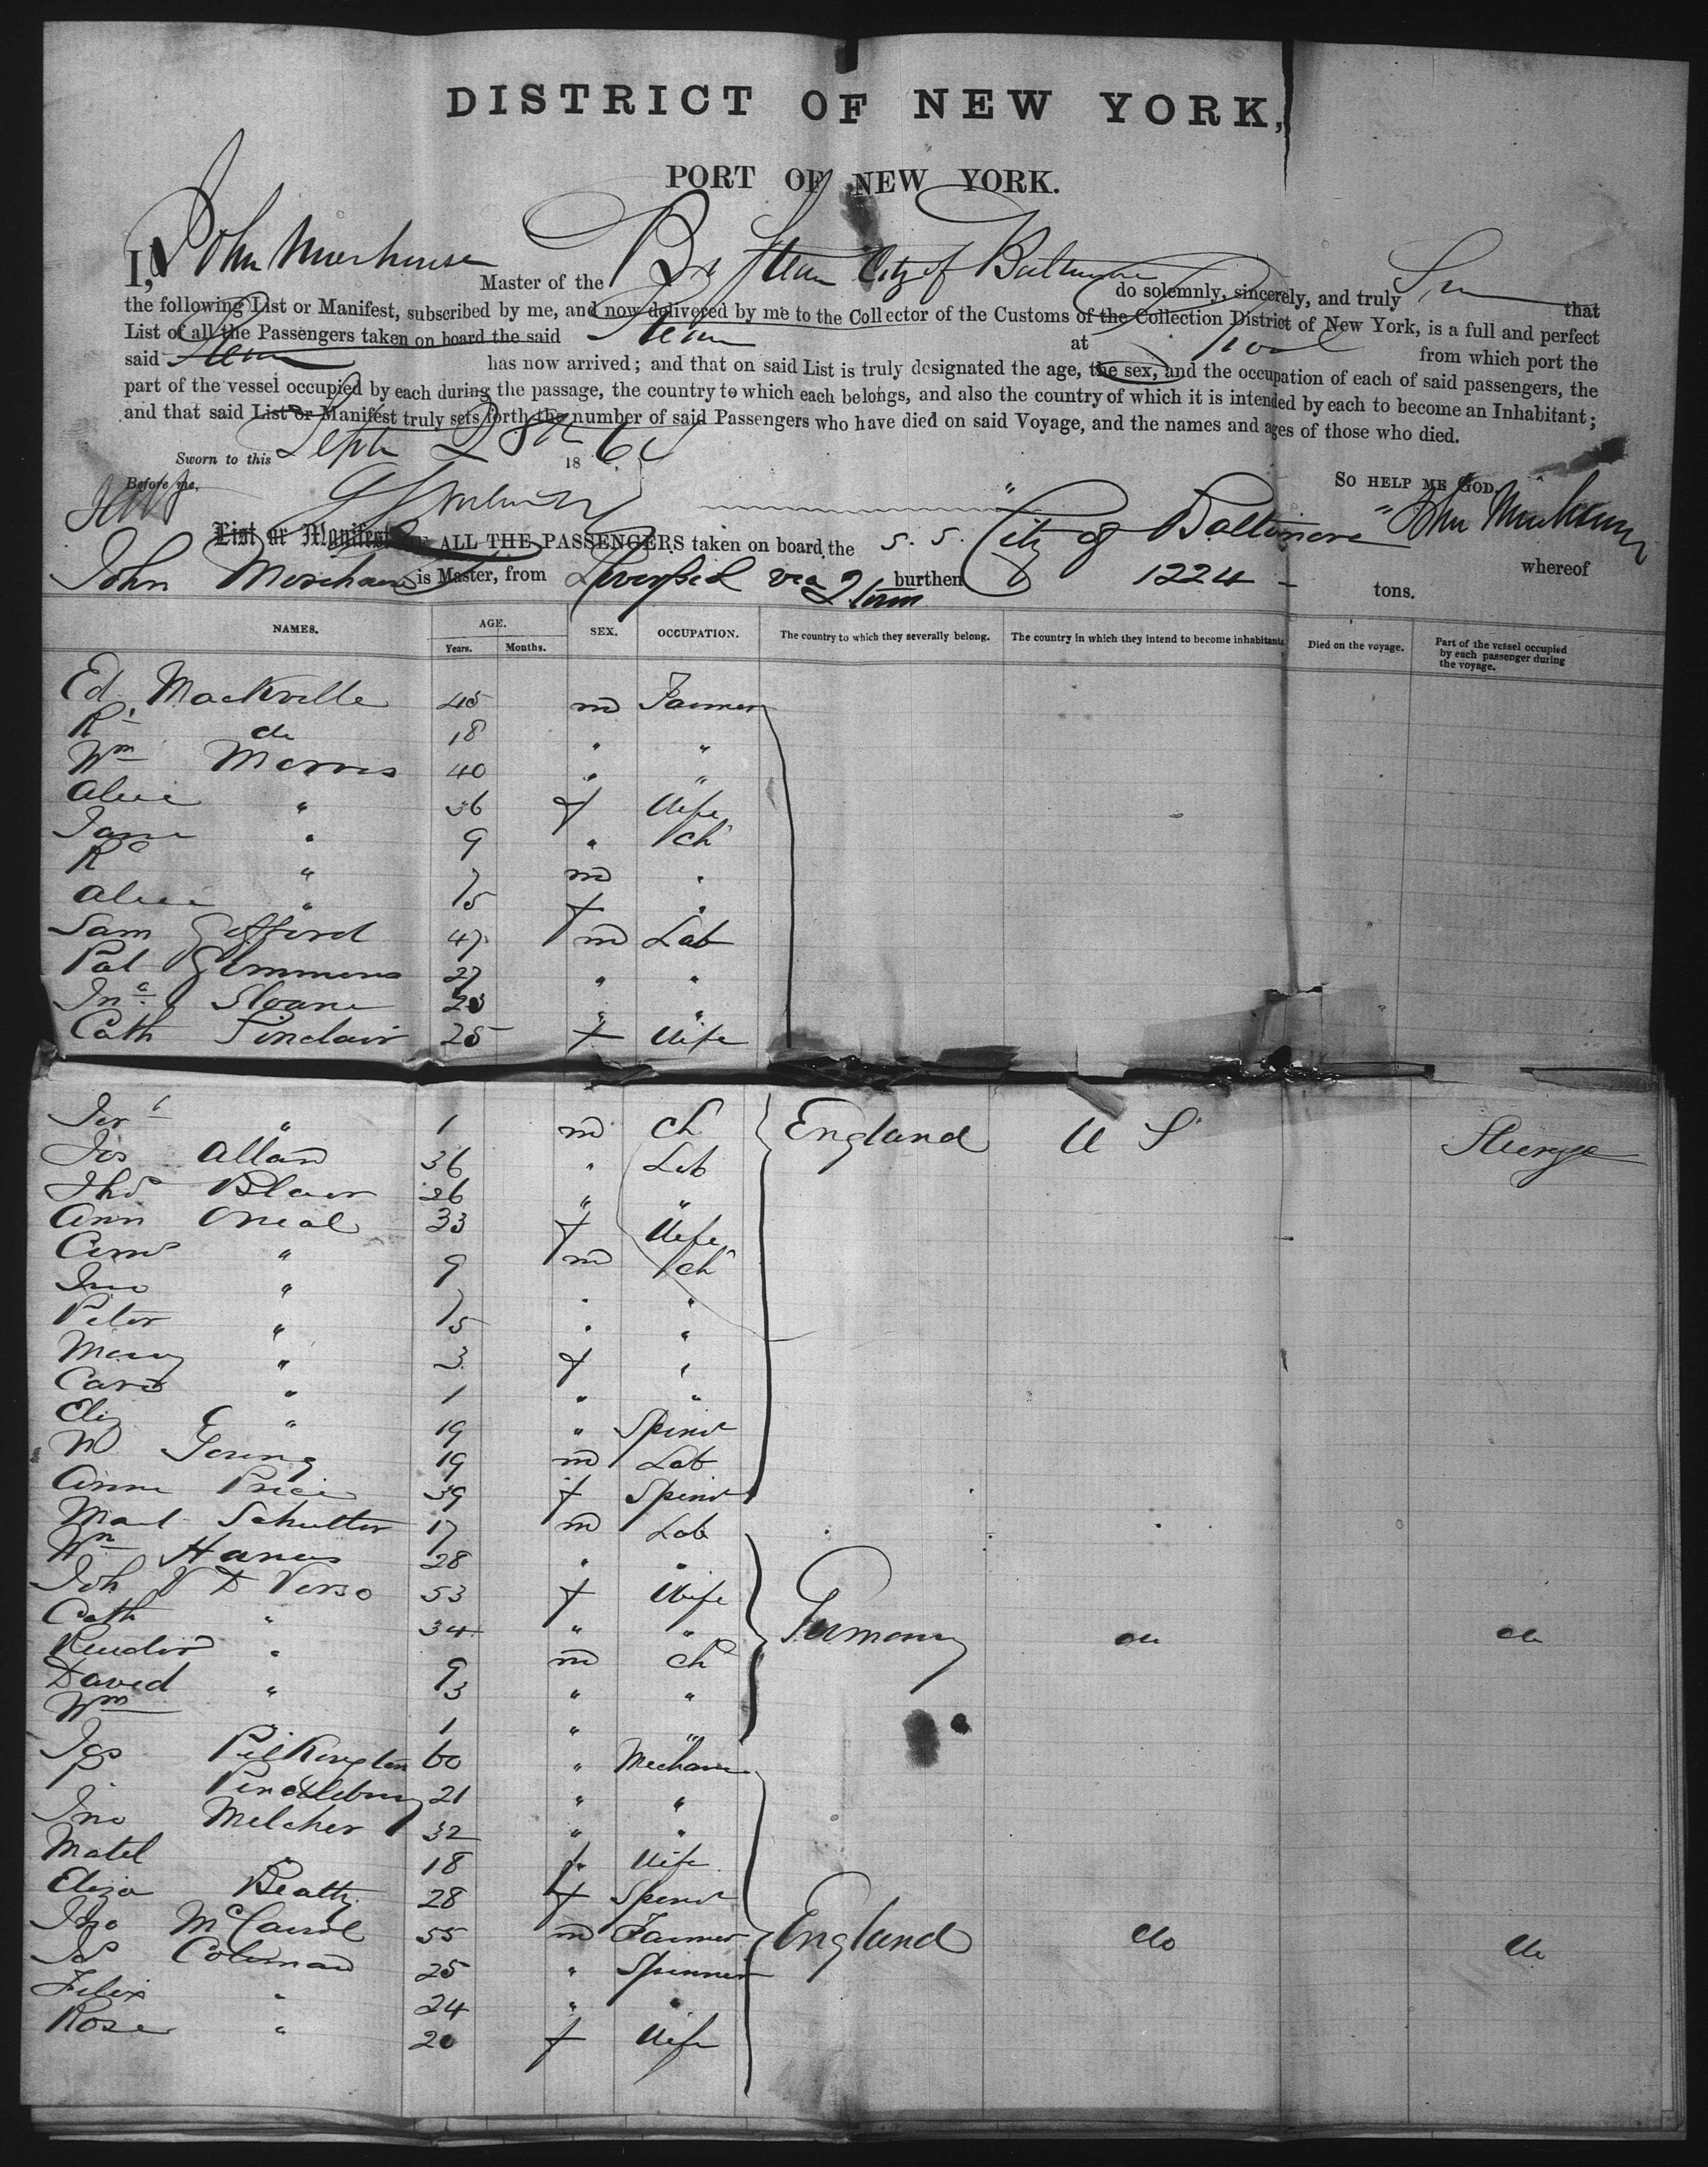 DISTRICT OF NEW YORK,
PORT OF NEW YORK.
I, John Mirehouse Master of the Br Steam City of Baltimore do solemnly, sincerely, and truly that
the following List or Manifest, subscribed by me, and now delivered by me to the Collector of the Customs of the Collection District of New York, is a full and perfect
List of all the Passengers taken on board the said Steam at L'pool from which port the
said Steam has now arrived; and that on said List is truly designated the age, the sex, and the occupation of each of said passengers, the
part of the vessel occupied by each during the passage, the country to which each belongs, and also the country of which it is intended by each to become an Inhabitant;
and that said List or Manifest truly sets forth the number of said Passengers who have died on said Voyage, and the names and ages of those who died.
Sworn to this Sept 28th 1864
SO HELP ME GOD.
Before me,
John Mirehouse
List or Manifest OF ALL THE PASSENGERS taken on board the S. S. City of Baltimore whereof
John Morehouse is Master, from Liverpool via burthen 1224 tons.
NAMES. AGE. SEX. OCCUPATION. The country to which they severally belong. The country in which they intend to become inhabitants. Died on the voyage. Part of the vessel occupied by each passenger during the voyage.
Years. Months.
Ed. Mackville 45 m Farmer
Rd do 18 " "
Wm Morris 40 " "
Alice " 36 f Wife
Jane " 9 " Ch
Rd " 7 m "
Alice " 5 f "
Sam Gifford 47 m Lab
Pat Gimmens 27 " "
Jno Sloane 20 " "
Cath Sinclair 25 f Wife
" 1 m Ch England U S Steerage
Jos Allan 36 " Lab
Thos Blair 26 " "
Ann Oneal 33 f Wife
" 9 m Ch
Jno " 7 " "
Peter " 5 " "
Mary " 3 f "
" 1 " "
Eliz " 19 " Spinst
W Young 19 m Lab
Anne Price 39 f Spinst
Schulter 17 m Lab
Wm Hanes 28 " "
Joh V D Verso 53 f Wife
Cath " 34 " " Germany do do
" 9 m Ch
David " 3 " "
Wm 1 " "
Jas Pilkington 60 " Mechanic
" Pendlebury 21 " "
Jno Melcher 32 " "
Matel " 18 f Wife
Eliza Beatty 28 f Spinst
Jno McCarrol 55 m Farmer England do do
Jas Coleman 25 " Spinner
Felix " 24 " "
Rose " 20 f Wife